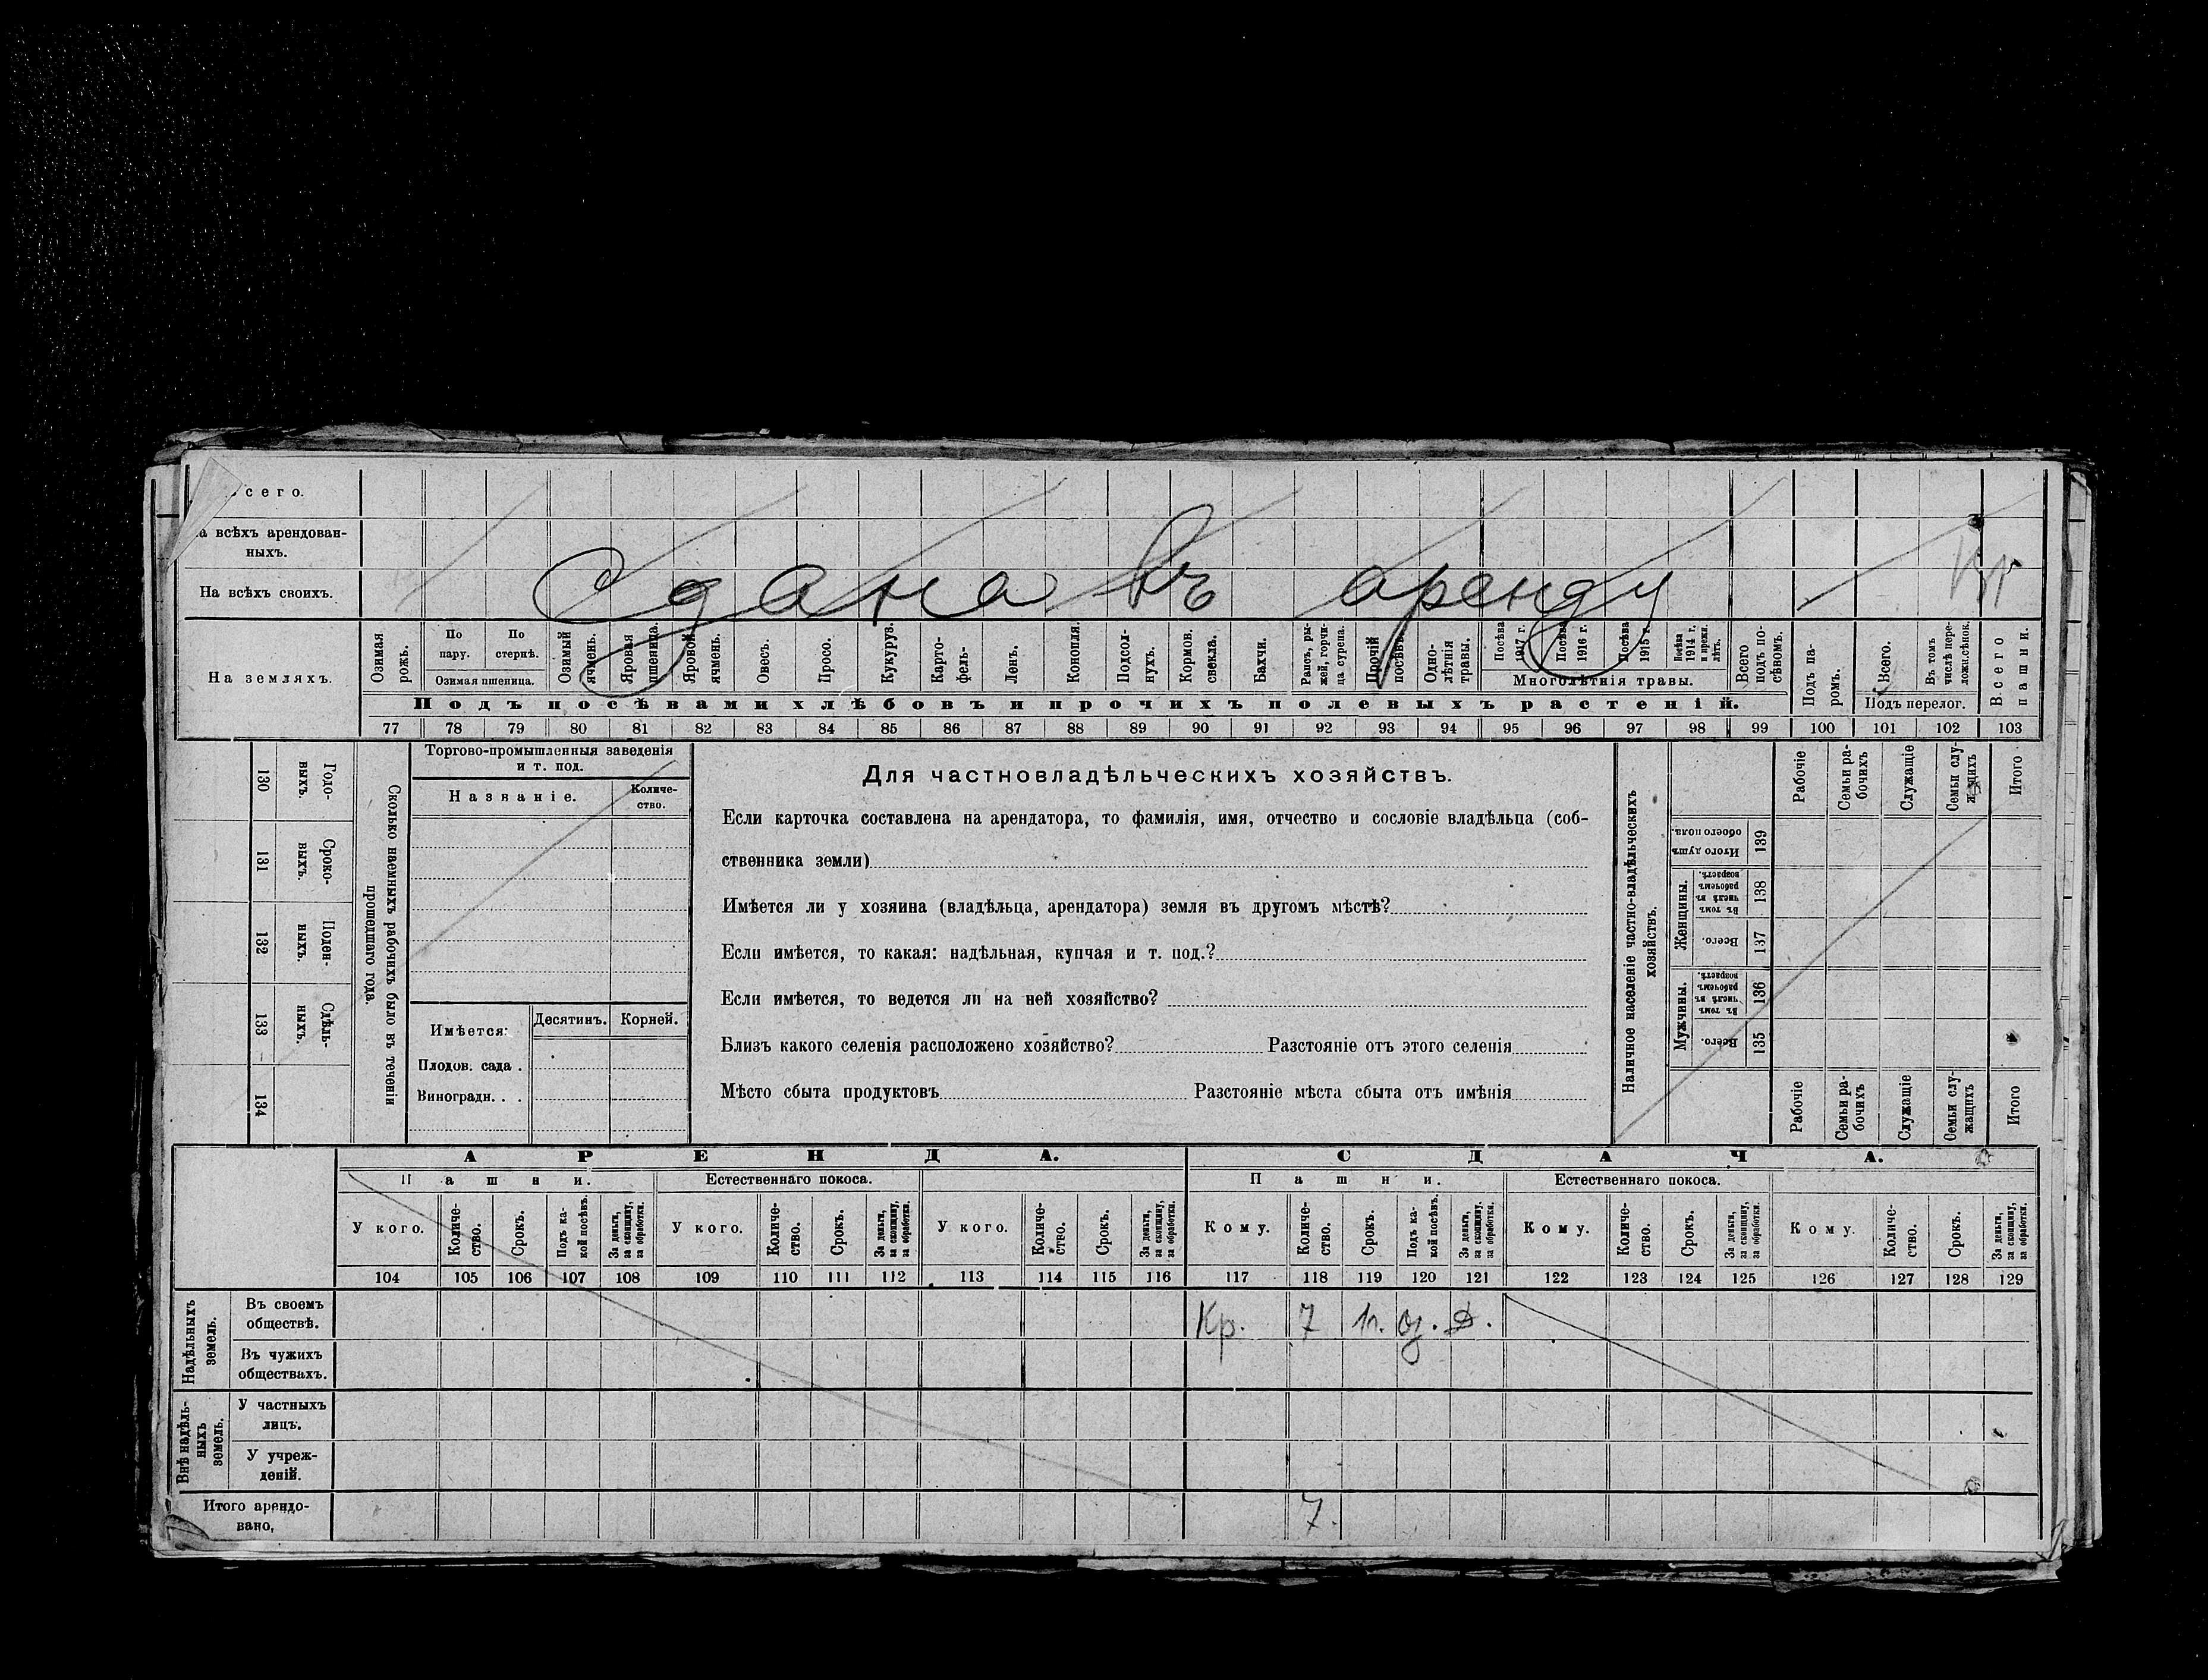 Всего.
На всѣхъ арендован-
ныхъ.
На всѣхъ своихъ.
Сдана въ аренду
Кр
На земляхъ.
Озимая рожь.
По пару.
По стернѣ.
Озимая пшеница.
Озимый ячмень.
Яровая пшеница.
Яровой ячмень.
Овесъ.
Просо.
Кукуруз.
Карто-
фель-
Ленъ.
Конопля.
Подсол-
нухъ.
Кормов. свекла.
Бахчи.
Рапсъ, ры-
жей, горчи-
ца сурепа.
Прочій посѣвъ.
Одно-
лѣтнія травы.
Посѣва 1917 г.
Посѣва 1916 г.
Посѣва 1915 г.
Посѣва 1914 г. и прежн. лѣтъ.
Многолѣтнія травы.
Всего подъ по-
сѣвомъ.
Подъ посѣвами хлѣбовъ и прочихъ полевыхъ растеній.
Подъ па-
ромъ.
Всего.
Въ томъ числѣ пере-
ложн.сѣнок.
Подъ перелог.
Всего пашни.
77 78 79 80 81 82 83 84 85 86 87 88 89 90 91 92 93 94 95 96 97 98 99 100 101 102 103
Годо-
выхъ.
130
Сроко-
ныхъ.
131
Поден-
ныхъ.
132
Сдѣль-
ныхъ.
133
134
Сколько наемныхъ рабочихъ было въ теченіи
прошедшаго года.
Торгово-промышленныя заведенія
и т. под.
Названіе.
Количе-
ство.
Имѣется:
Десятинъ.
Корней.
Плодов. сада .
Виноградн. . .
Для частновладѣльческихъ хозяйствъ.
Если карточка составлена на арендатора, то фамилія, имя, отчество и сословіе владѣльца (соб-
ственника земли)
Имѣется ли у хозяина (владѣльца, арендатора) земля въ другомъ мѣстѣ?
Если имѣется, то какая: надѣльная, купчая и т. под.?
Если имѣется, то ведется ли на ней хозяйство?
Близъ какого селенія расположено хозяйство? Разстояніе отъ этого селенія
Мѣсто сбыта продуктовъ Разстояніе мѣста сбыта отъ имѣнія
Наличное населеніе частно-владѣльческихъ
хозяйствъ.
Рабочіе
Семьи ра-
бочихъ
Служащіе
Семьи слу-
жащихъ
Итого
Итого душъ обоего пола.
139
Женщины.
Въ томъ числѣ въ рабочемъ возрастѣ.
138
Всего.
137
Мужчины.
Въ томъ числѣ въ рабочемъ возрастѣ.
136
Всего.
135
Рабочіе
Семьи ра-
бочихъ
Служащіе
Семьи слу-
жащихъ
Итого
АРЕНДА.
СДАЧА.
Пашни.
Естественнаго покоса.
Пашни.
Естественнаго покоса.
У кого.
Количе-
ство.
Срокъ.
Подъ ка-
кой посѣвъ.
За деньги, за скопщину, за обработки.
У кого.
Количе-
ство.
Срокъ.
За деньги, за скопщину, за обработки.
У кого.
Количе-
ство.
Срокъ.
За деньги, за скопщину, за обработки.
Кому.
Количе-
ство.
Срокъ.
Подъ ка-
кой посѣвъ.
За деньги, за скопщину, за обработки.
Кому.
Количе-
ство.
Срокъ.
За деньги, за скопщину, за обработки.
Кому.
Количе-
ство.
Срокъ.
За деньги, за скопщину, за обработки.
104 105 106 107 108 109 110 111 112 113 114 115 116 117 118 119 120 121 122 123 124 125 126 127 128 129
Надѣльныхъ
земель.
Въ своемъ
обществѣ.
Кр. 7 1г. оз. Д.
Въ чужихъ
обществахъ.
Внѣ надѣль-
ныхъ
земель.
У частныхъ
лицъ.
У учреж-
деній.
Итого арендо-
вано,
7.